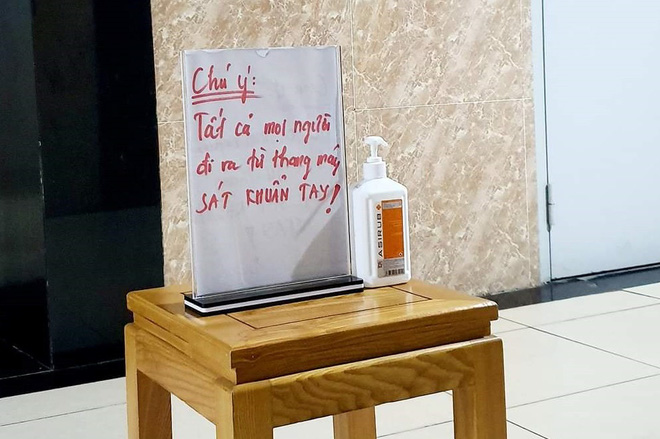 Chú ý:
Tất cả mọi người
đi ra từ thang máy
SÁT KHUẨN TAY!
ASIRUB